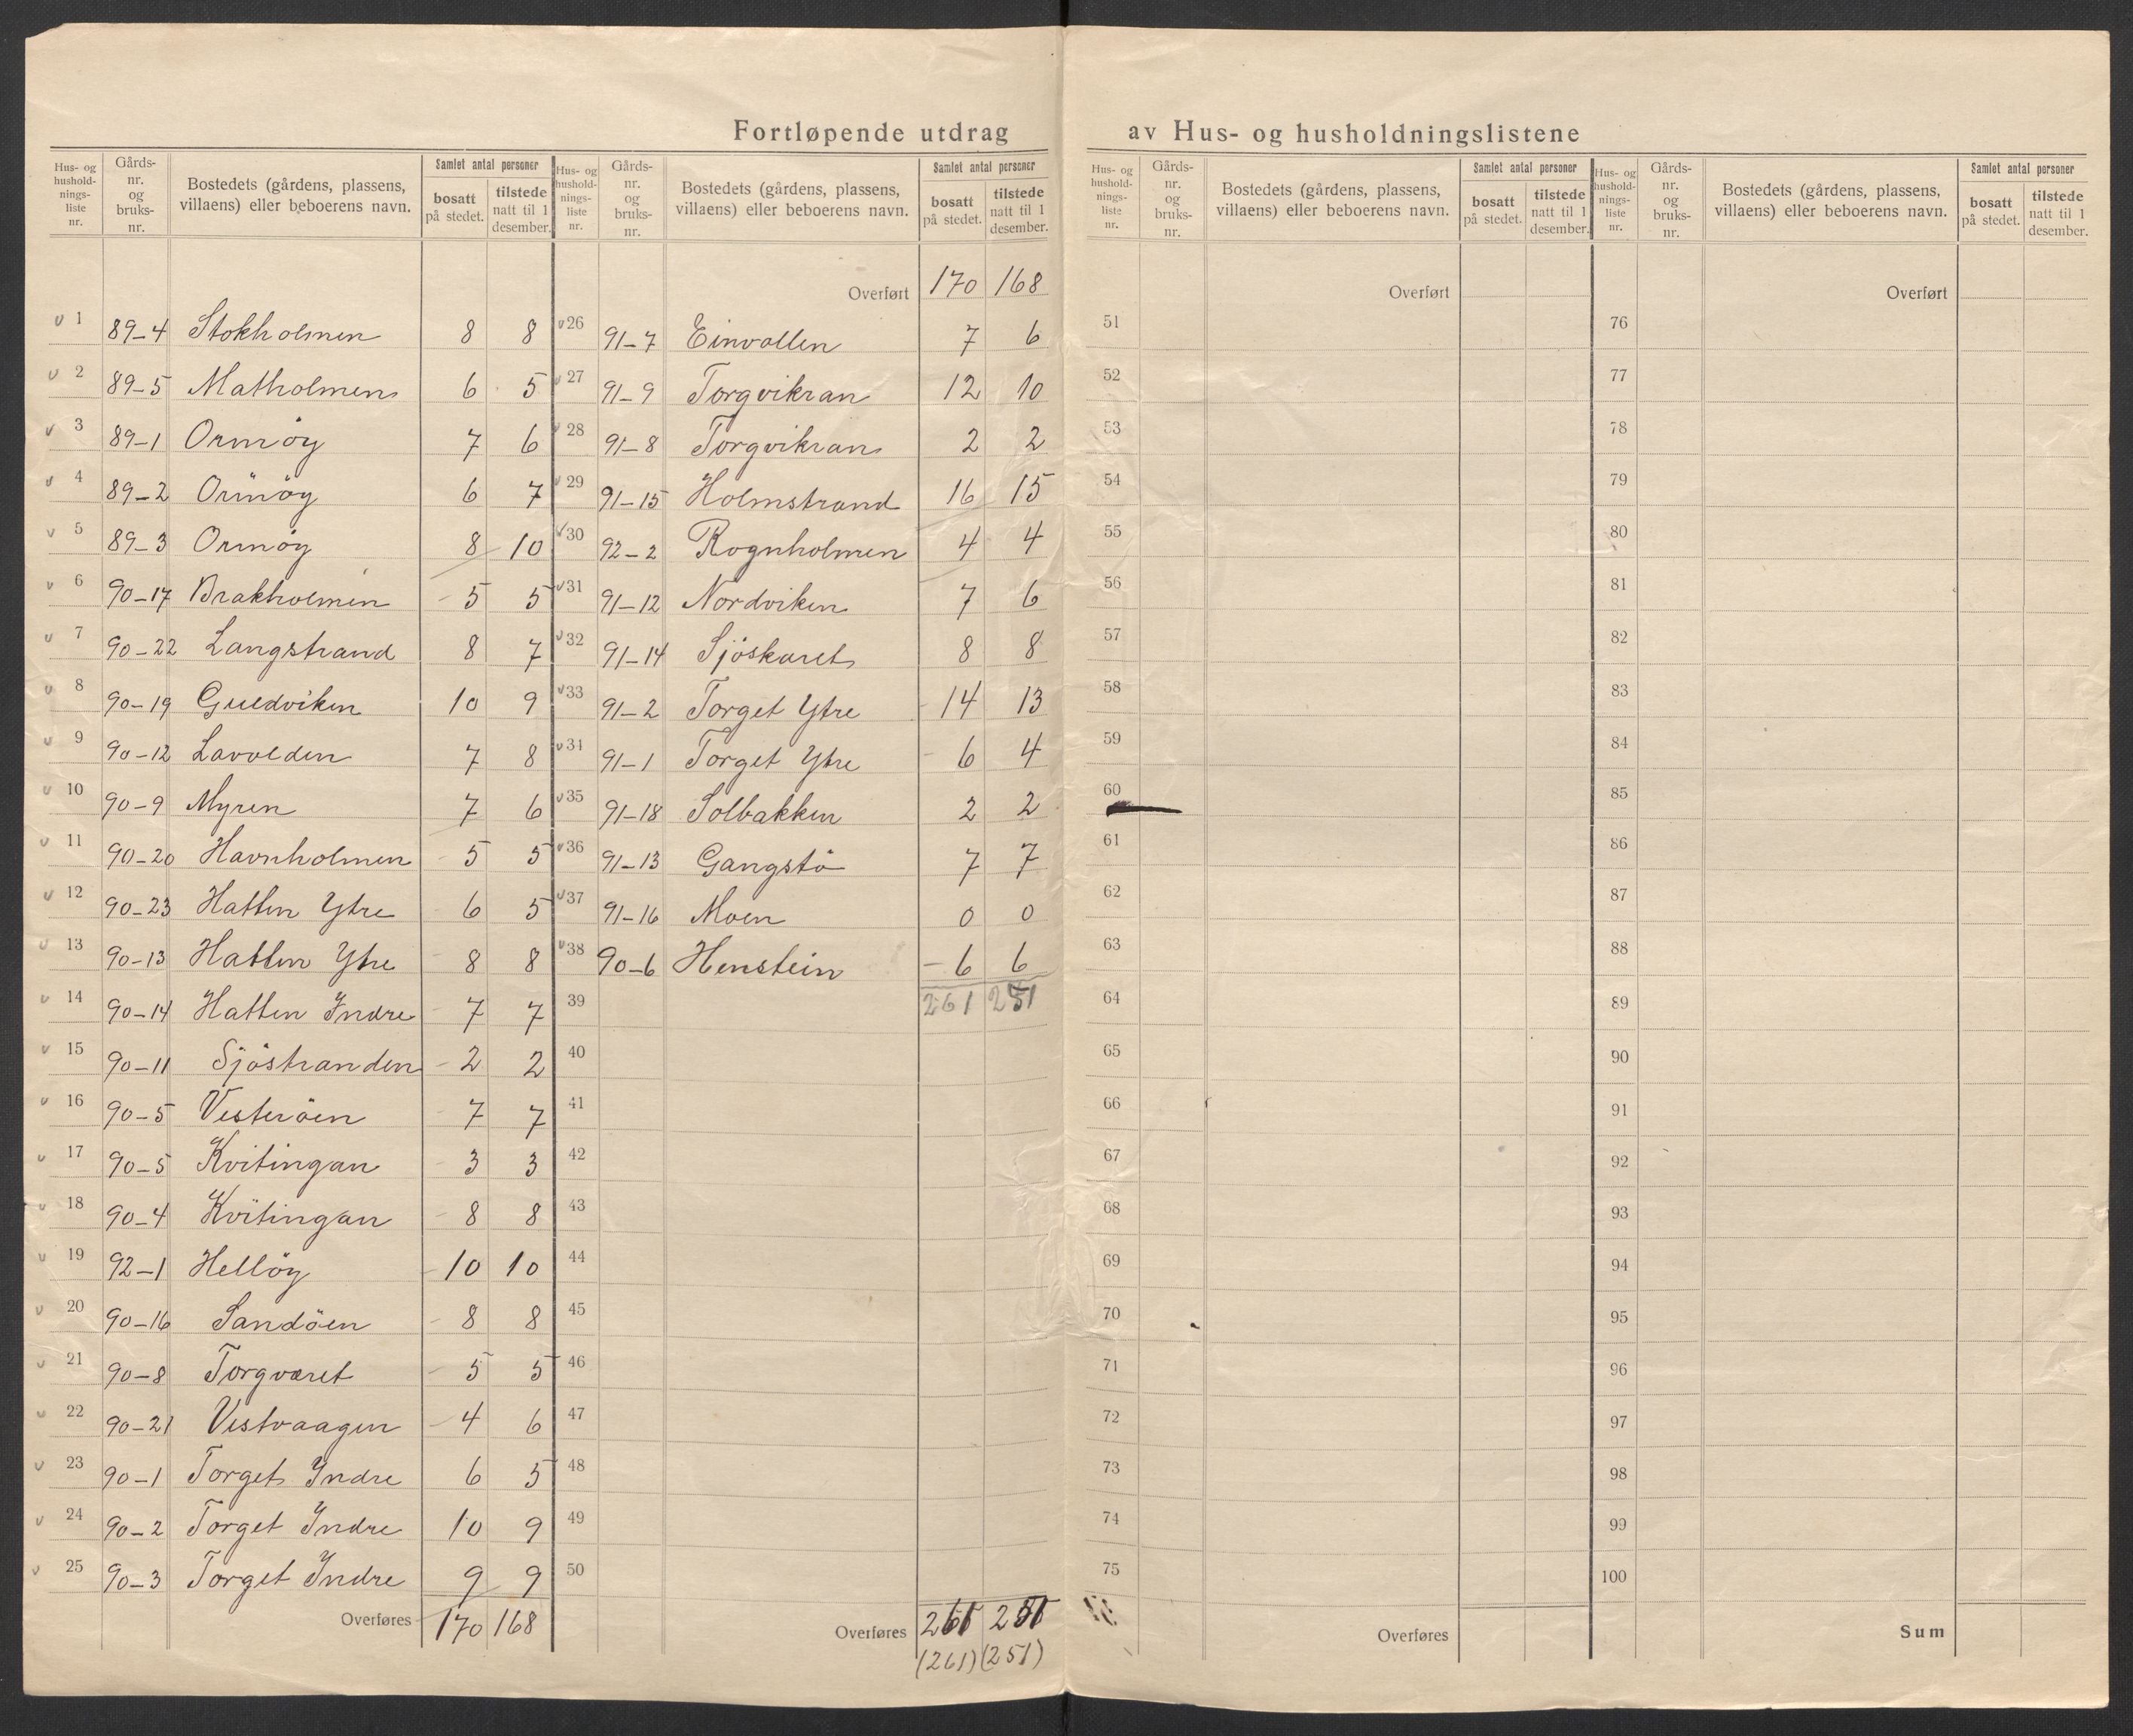 Fortløpende utdrag av Hus- og husholdningslistene
Hus- og husholdnings-liste nr. Gårds-nr. og bruks-nr. Bostedets (gårdens, plassens, villaens) eller beboerens navn. Samlet antal personer bosatt på stedet. tilstede natt til 1 desember.
1 89-4 Stokholmen 8 8
2 89-5 Matholmen 6 5
3 89-1 Ormøy 7 6
4 89-2 Ormöy 6 7
5 89-3 Ormøy 8 10
6 90-17 Brakholmen 5 5
7 90-22 Langstrand 8 7
8 90-19 Guldviken 10 9
9 90-12 Lavolden 7 8
10 90-9 Myren 7 6
11 90-20 Havnholmen 5 5
12 90-23 Hatten Ytre 6 5
13 90-13 Hatten Ytre 8 8
14 90-14 Hatten Indre 7 7
15 90-11 Sjöstranden 2 2
16 90-5 Vesteröen 7 7
17 90-5 Kvitingan 3 3
18 90-4 Kvitingan 8 8
19 92-1 Hellöy 10 10
20 90-16 Sandöen 8 8
21 90-8 Torgværet 5 5
22 90-21 Vestvaagen 4 6
23 90-1 Torget Indre 6 5
24 90-2 Torget Indre 10 9
25 90-3 Torget Indre 9 9
Overføres 170 168
Hus- og husholdnings-liste nr. Gårds-nr. og bruks-nr. Bostedets (gårdens, plassens, villaens) eller beboerens navn. Samlet antal personer bosatt på stedet. tilstede natt til 1 desember.
Overført 170 168
26 91-7 Einvollen 7 6
27 91-9 Torgvikran 12 10
28 91-8 Torgvikran 2 2
29 91-15 Holmstrand 16 15
30 92-2 Rognholmen 4 4
31 91-12 Nordviken 7 6
32 91-14 Sjöskaret 8 8
33 91-2 Torget Ytre 14 13
34 91-1 Torget Ytre 6 4
35 91-18 Solbakken 2 2
36 91-13 Gangstö 7 7
37 91-16 Moen 0 0
38 90-6 Henstein 6 6
39 261 251
40
41
42
43
44
45
46
47
48
49
50
Overføres 261 251
(261) (251)
Hus- og husholdnings-liste nr. Gårds-nr. og bruks-nr. Bostedets (gårdens, plassens, villaens) eller beboerens navn. Samlet antal personer bosatt på stedet. tilstede natt til 1 desember.
Overført
51
52
53
54
55
56
57
58
59
60
61
62
63
64
65
66
67
68
69
70
71
72
73
74
75
Overføres
Hus- og husholdnings-liste nr. Gårds-nr. og bruks-nr. Bostedets (gårdens, plassens, villaens) eller beboerens navn. Samlet antal personer bosatt på stedet. tilstede natt til 1 desember.
Overført
76
77
78
79
80
81
82
83
84
85
86
87
88
89
90
91
92
93
94
95
96
97
98
99
100
Sum